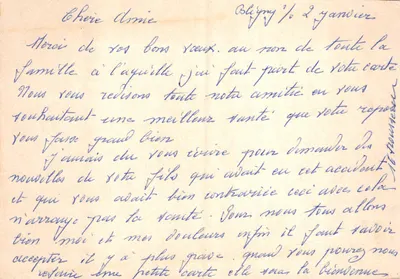 Chère Amie Bligny s/o 2 janvier
Merci de vos bons vœux. au nom de toute la
famille à laquelle j'ai fait part de votre carte
Nous vous redisons toute notre amitié en vous
souhaitant une meilleur santé que votre repos
vous fasse grand bien
J'aurais du vous écrire pour demander des
nouvelles de votre fils qui avait eu cet accident
et que vous avait bien contrariée ceci avec cela
n'arrange pas la santé. Pour nous tous allons
bien moi et mes douleurs enfin il faut savoir
accepter il y a plus grave. quand vous pourez nous
refaire une petite carte elle sera la bienvenue